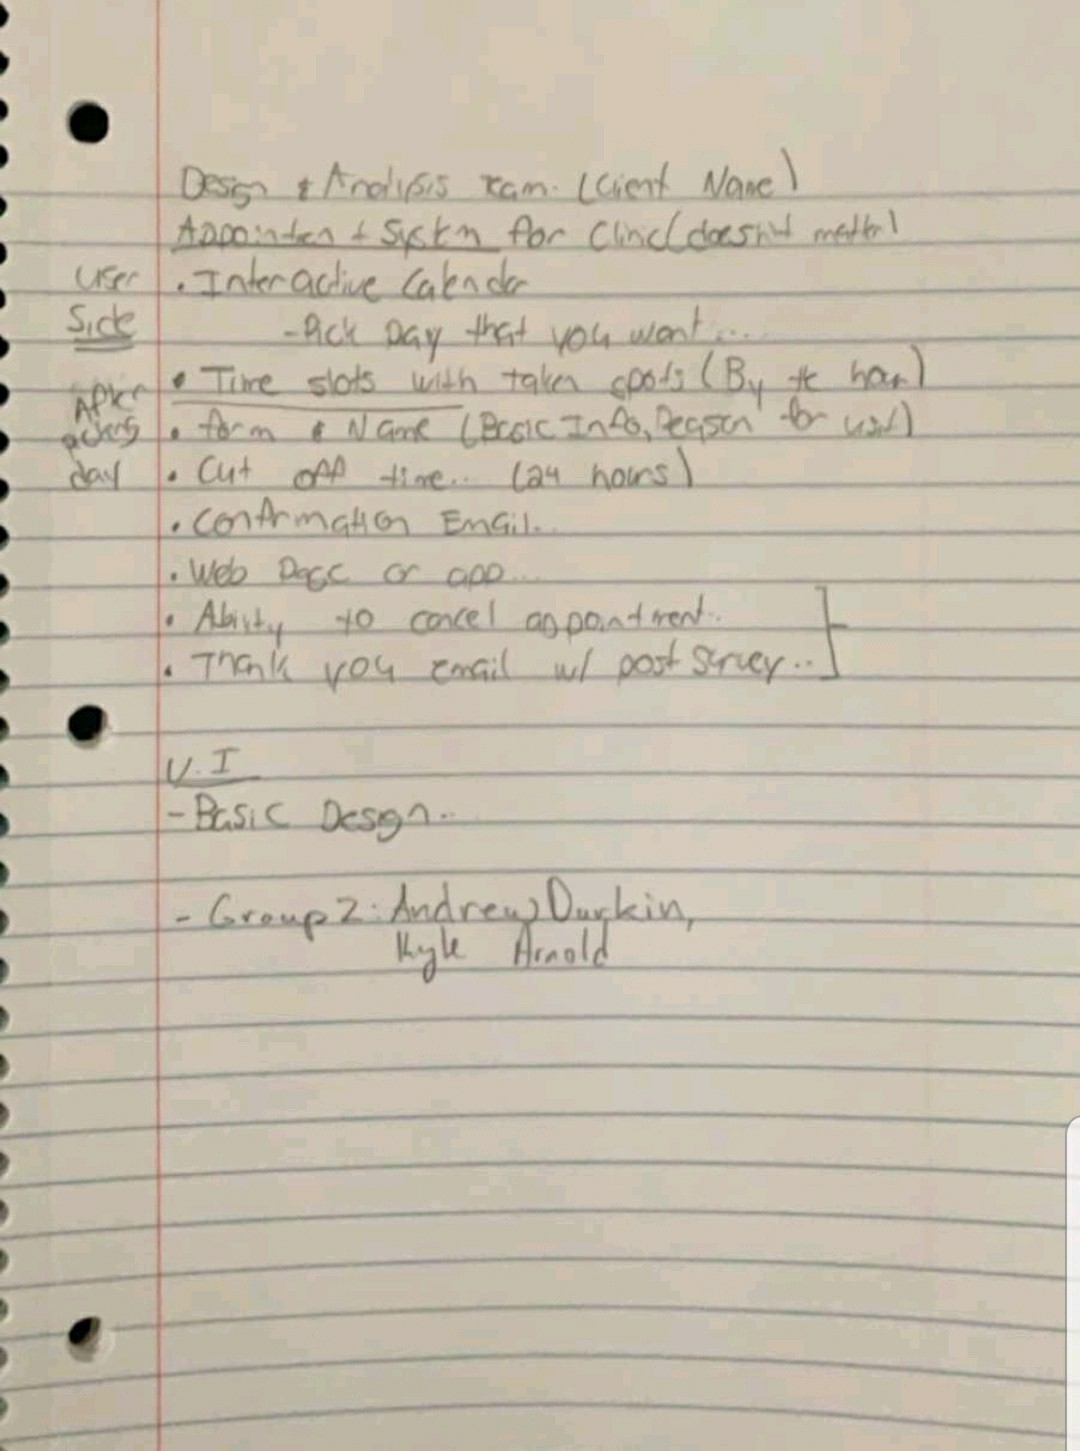 Design & Analysis Team. (Client Name)
Appointment System for Clinc (doesn't matter)
User
Side
• Interactive Calendar
- Pick Day that you want...
After
picking
day
• Time slots with taken spots (By the hour)
• form & Name (Basic Info, Reason for visit)
• Cut off time... (24 hours)
• Confirmation Email..
• Web Page or app...
• Ability to cancel appointment..
• Thank you email w/ post survey...
U.I
- Basic Design...
- Group 2: Andrew Durkin,
Kyle Arnold